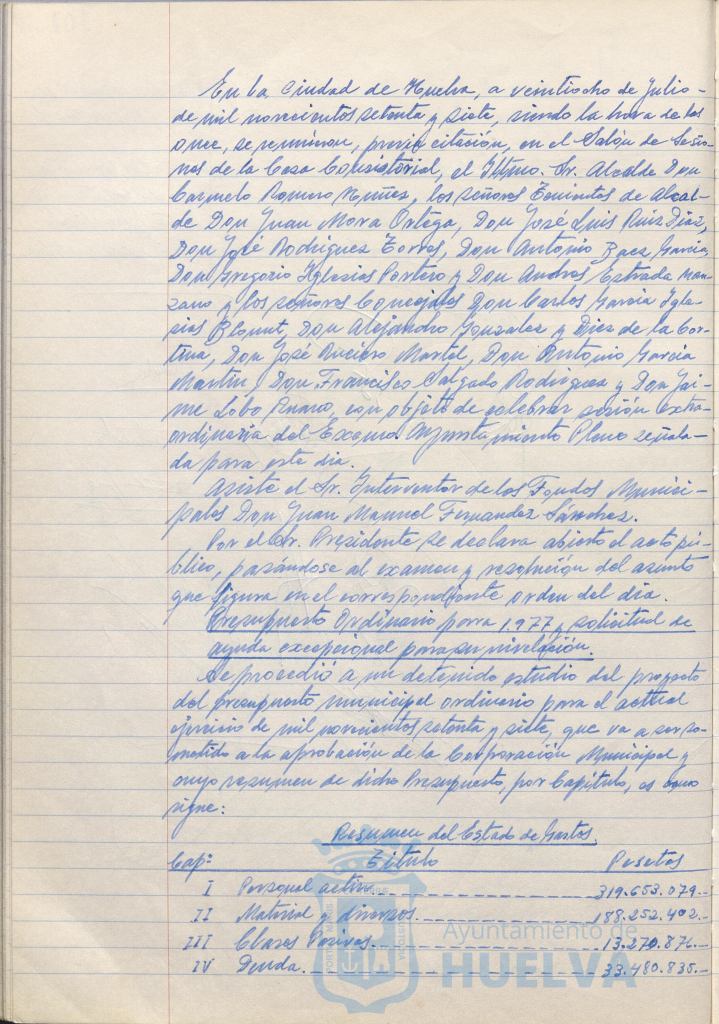 En la Ciudad de Huelva, a veintiocho de Julio
de mil novecientos setenta y siete, siendo la hora de las
once, se reunieron, previa citación, en el Salón de Sesio-
nes de la Casa Consistorial, el Iltmo. Sr. Alcalde Don
Carmelo Romero Núñez, los señores Tenientes de Alcal-
de Don Juan Mora Ortega, Don José Luis Ruiz Díaz,
Don José Rodríguez Torres, Don Antonio Baez García,
Don Gregorio Iglesias Portero y Don Andres Estrada Man-
zano y los señores Concejales Don Carlos García Igle-
sias Don Alejandro Gonzalez y Diez de la Cor-
tina, Don José Martel, Don Antonio García
Martín, Don Francisco Salgado Rodríguez y Don Jai-
me Lobo con objeto de celebrar sesión extra-
ordinaria del Excmo. Ayuntamiento Pleno señala-
da para este dia.
Asiste el Sr. Interventor de los Fondos Munici-
pales Don Juan Manuel Fernandez Sánchez.
Por el Sr. Presidente se declara abierto el acto pú-
blico, pasándose al examen y resolución del asunto
que figura en el correspondiente orden del dia.
Presupuesto Ordinario para 1.977 y solicitud de
ayuda excepcional para su nivelación.
Se procedió a un detenido estudio del proyecto
del presupuesto municipal ordinario para el actual
ejercicio de mil novecientos setenta y siete, que va a ser so-
metido a la aprobación de la Corporación Municipal y
cuyo resumen de dicho Presupuesto, por Capítulo, es como
sigue:
Resumen del Estado de Gastos.
Cap: Titulo Pesetas
I Personal activo 319.653.079.-
II Material y diversos 188.252.402.-
III Clases Pasivas 13.270.876.-
IV Deuda 33.480.835.-
Ayuntamiento de
HUELVA